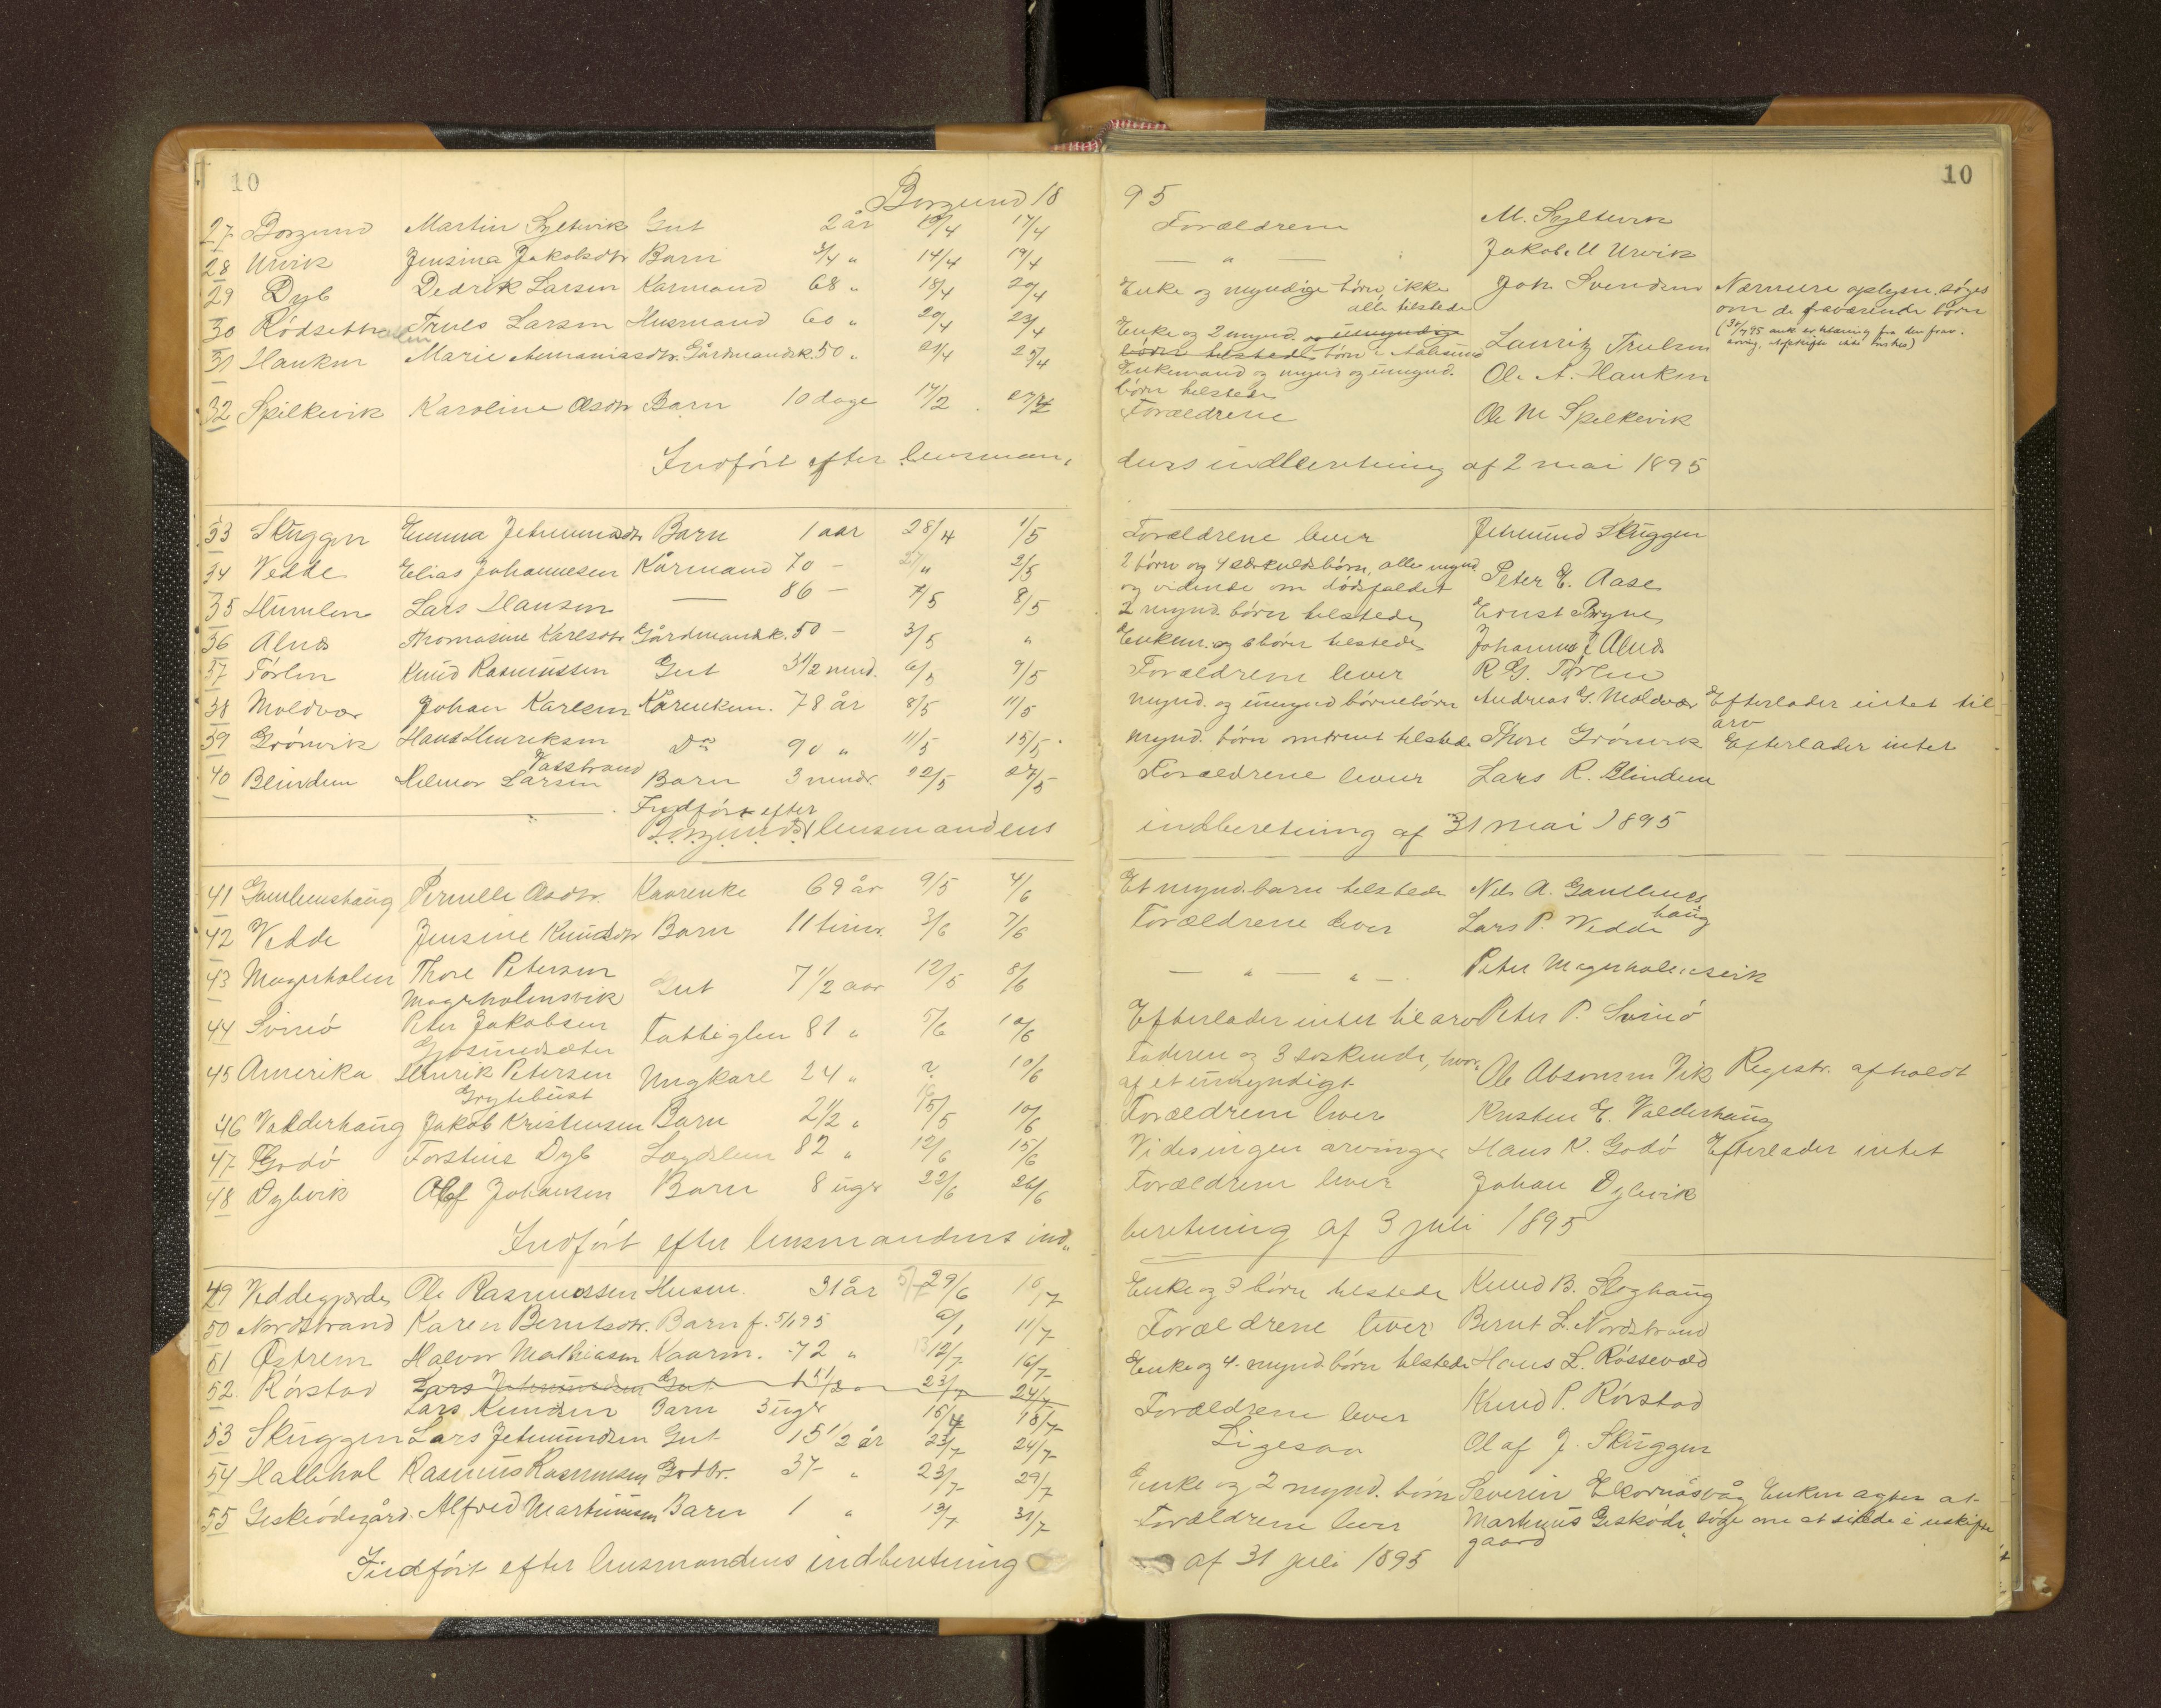 10
10
Borgund 18
95
27 Borgund Martin Syltevik Gut 2 år 13/4 17/4 Forældrene M. Syltevik
28 Urvik Jensina Jakobsdtr Barn 3/4 " 14/4 19/4 — " — Jakob U Urvik
29 Dyb Dedrik Larsen Kårmand 68 " 18/4 20/4 Enke og myndige børn, ikke Joh. Svendsen Nærmere oplysn. søges
alle tilstede om de fraværende børn
30 Rödseth Truls Larsen Husmand 60 " 20/4 23/4 Enke og 2 mynd. og umyndige Lauritz Trulsen
børn tilstede børn i Aalesund
31 Hauken Marie Ananiasdtr. Gårdmandsk. 50 " 21/4 25/4 Enkemand og mynd og umynd. Ole A. Hauken
børn tilstede
32 Spilkevik Karoline Olsdtr Barn 10 dage 17/2 27/4 Forældrene Ole M Spilkevik
Indført efter lensman-
dens indberetning af 2 mai 1895
33 Skuggen Emma Jetmundsdtr Barn 1 aar 28/4 1/5 Forældrene lever Jetmund Skuggen
34 Vedde Elias Johannesen Kårmand 70 - 27/" 2/5 2 børn og 4 særkuldsbørn, alle mynd Peter E. Aase
og vidende om dödsfaldet
35 Humlen Lars Hansen — 86 - 7/5 8/5 2 mynd. børn tilstede Ernst Bryne
36 Alnæs Thomasine Karlsdtr Gårdmandsk. 50 - 3/5 " Enkem. og børn tilstede Johannes P Alnæs
37 Tørlen Knud Rasmussen Gut 3 1/2 mnd. 6/5 9/5 Forældrene lever R. G. Tørlen
38 Moldvær Johan Karlsen Kårenkem. 78 år 8/5 11/5 mynd. og umynd børnebørn Andreas G. Moldvær Efterlader intet til
arv
39 Grönvik Hans Henriksen Do 90 " 11/5 15/5 mynd. børn omtrent tilstede Thore Grönvik Efterlader intet
Vasstrand
40 Blindum Hilmar Larsen Barn 3 mndr. 22/5 27/5 Forældrene lever Lars R. Blindum
Indført efter
Borgunds lensmandens
indberetning af 31 mai 1895
41 Gamlemshaug Pernille Olsdtr. Kaarenke 69 år 9/5 4/6 Et mynd. barn tilstede Nils A. Gamlems
haug
42 Vedde Jensine Knudsdtr Barn 11 timer 3/6 7/6 Forældrene lever Lars P. Vedde
43 Magerholm Thore Petersen Gut 7 1/2 aar 12/5 8/6 — " — " — Peter Magerholmsvik
Magerholmsvik
44 Svinö Peter Jakobsen Fattiglem 81 " 5/6 10/6 Efterlader intet til arv Peter P. Svinö
Gjøsundsæter
45 Amerika Henrik Petersen Ungkarl 24 " ? 10/6 Faderen og 3 søskende, hvor- Ole Absonsen Vik Registr. afholdt
Grytebust af et umyndigt
46 Valderhaug Jakob Kristensen Barn 2 1/2 " 15/5 10/6 Forældrene lever Kristen E. Valderhaug
47 Godö Torstine Dyb Lægdslem 82 " 12/6 15/6 Vides ingen arvinger Hans K. Godö Efterlader intet
48 Dybvik Olaf Johansen Barn 8 uger 22/6 26/6 Forældrene lever Johan Dybvik
Indført efter lensmandens ind-
beretning af 3 juli 1895
49 Veddegjærde Ole Rasmussen Husm. 31 år 29/6 10/7 Enke og 3 børn tilstede Knud B. Skoghaug
50 Nordstrand Karen Berntsdtr. Barn f. 5/1 95 6/1 11/7 Forældrene lever Bernt L. Nordstrand
51 Østrem Halvor Mathiasen Kaarm. 72 " 12/7 16/7 Enke og 4 mynd børn tilstede Hans L. Røssevold
52 Rørstad Lars Jetmundsen Gut 15 1/2 " 23/7 24/7
Lars Knudsen Barn 3 uger 15/7 18/7 Forældrene lever Knud P. Rørstad
53 Skuggen Lars Jetmundsen Gut 15 1/2 år 23/7 24/7 Ligesaa Olaf J. Skuggen
54 Hatlehol Rasmus Rasmussen Gårdbr. 37 " 23/7 29/7 Enke og 2 mynd. børn Severin Ekornåsvåg Enken agter at
55 Geskeödegård Alfred Martinusen Barn 1 " 13/7 31/7 Forældrene lever Martinus Geskøde- søge om at sidde i uskifte
gaard
Indført efter lensmandens indberetning
af 31 juli 1895